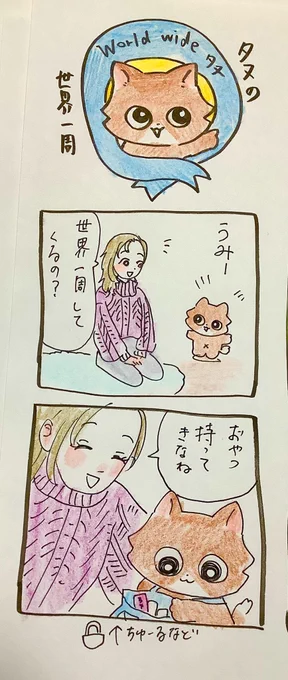 World wide タヌ
タヌの
世界一周
うみー
世界一周して
くるの？
おやつ
持って
きなね
↑ちゅーるなど